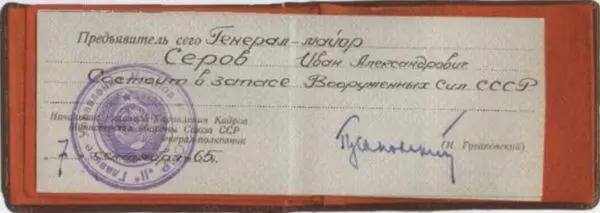 Предъявитель сего Генерал-майор
Серов Иван Александрович
Состоит в запасе Вооруженных Сил СССР
Начальник Главного Управления Кадров
Министерства обороны Союза ССР
генерал-полковник
Гусаковский
(И. Гусаковский)
7 65г.
Главное Управление